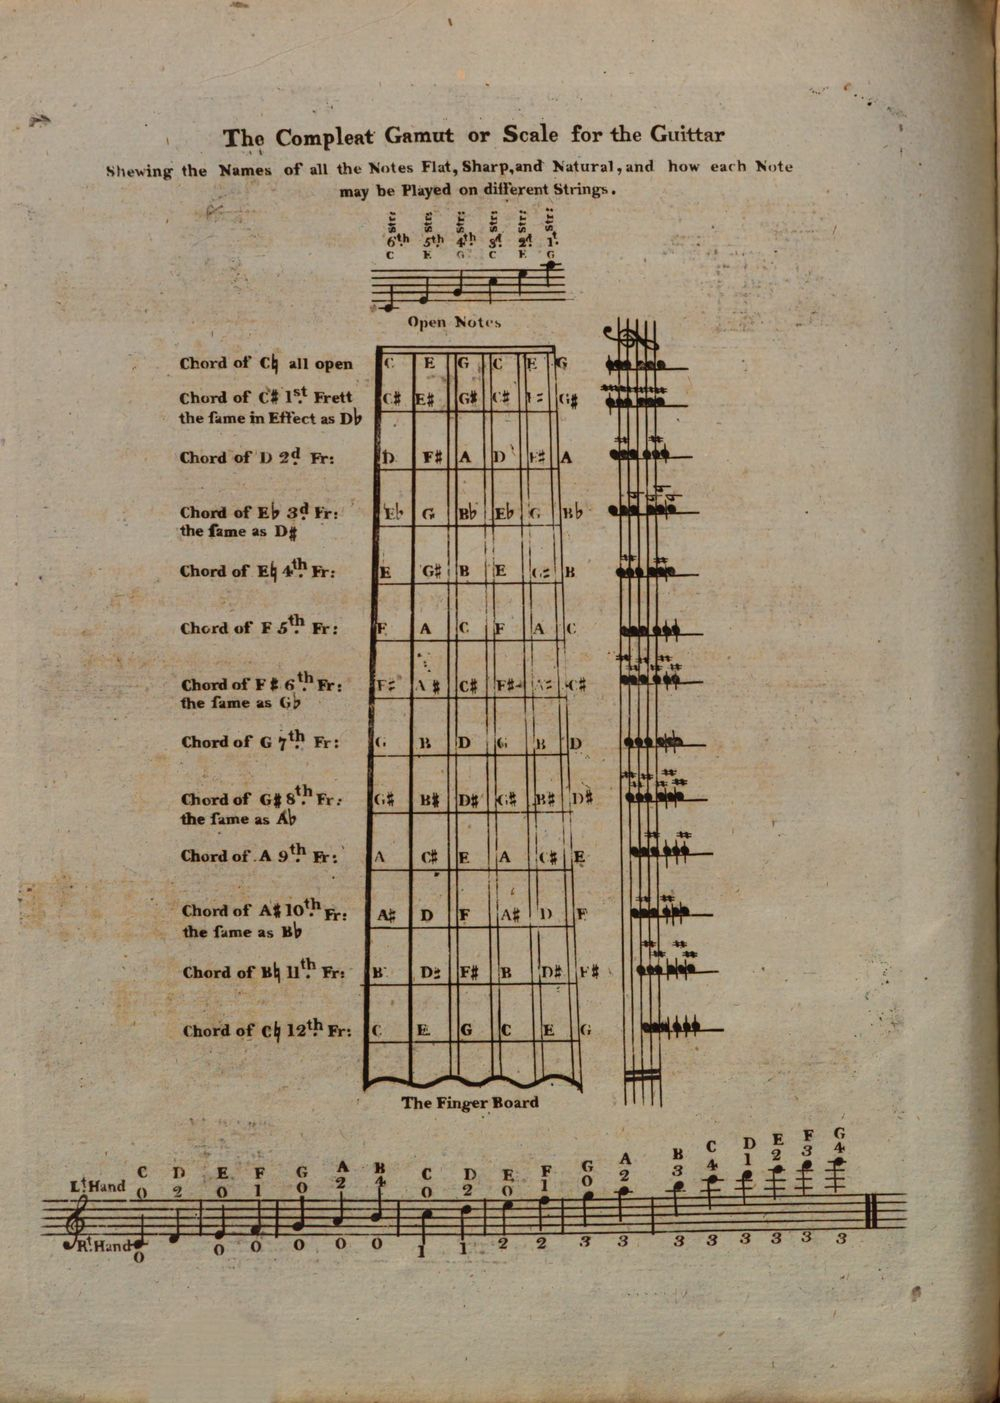 The Compleat Gamut or Scale for the Guittar
Shewing the Names of all the Notes Flat, Sharp, and Natural, and how each Note
may be Played on different Strings.
6th Str: 5th Str: 4th Str: 3d Str: 2d Str: 1t. Str:
C E G C E G
Open Notes
Chord of C♮ all open C E G C E G
Chord of C♯ 1st. Frett C♯ E♯ G♯ C♯ G♯
the ſame in Effect as D♭
Chord of D 2d. Fr: D F♯ A D F♯ A
Chord of E♭ 3d. Fr: E♭ G B♭ E♭ G B♭
the ſame as D♯
Chord of E♮ 4th. Fr: E G♯ B E G♯ B
Chord of F 5th. Fr: F A C F A C
Chord of F♯ 6th. Fr: F♯ A♯ C♯ F♯ A♯ C♯
the ſame as G♭
Chord of G 7th. Fr: G B D G B D
Chord of G♯ 8th. Fr: G♯ B♯ D♯ G♯ B♯ D♯
the ſame as A♭
Chord of A 9th. Fr: A C♯ E A C♯ E
Chord of A♯ 10th. Fr: A♯ D F A♯ D F
the ſame as B♭
Chord of B♮ 11th. Fr: B D♯ F♯ B D♯ F♯
Chord of C♮ 12th. Fr: C E G C E G
The Finger Board
C D E F G A B C D E F G A B C D E F G
Lt. Hand 0 2 0 1 0 2 4 0 2 0 1 0 2 3 4 1 2 3 4
Rt. Hand 0 0 0 0 0 0 1 1 2 2 3 3 3 3 3 3 3 3